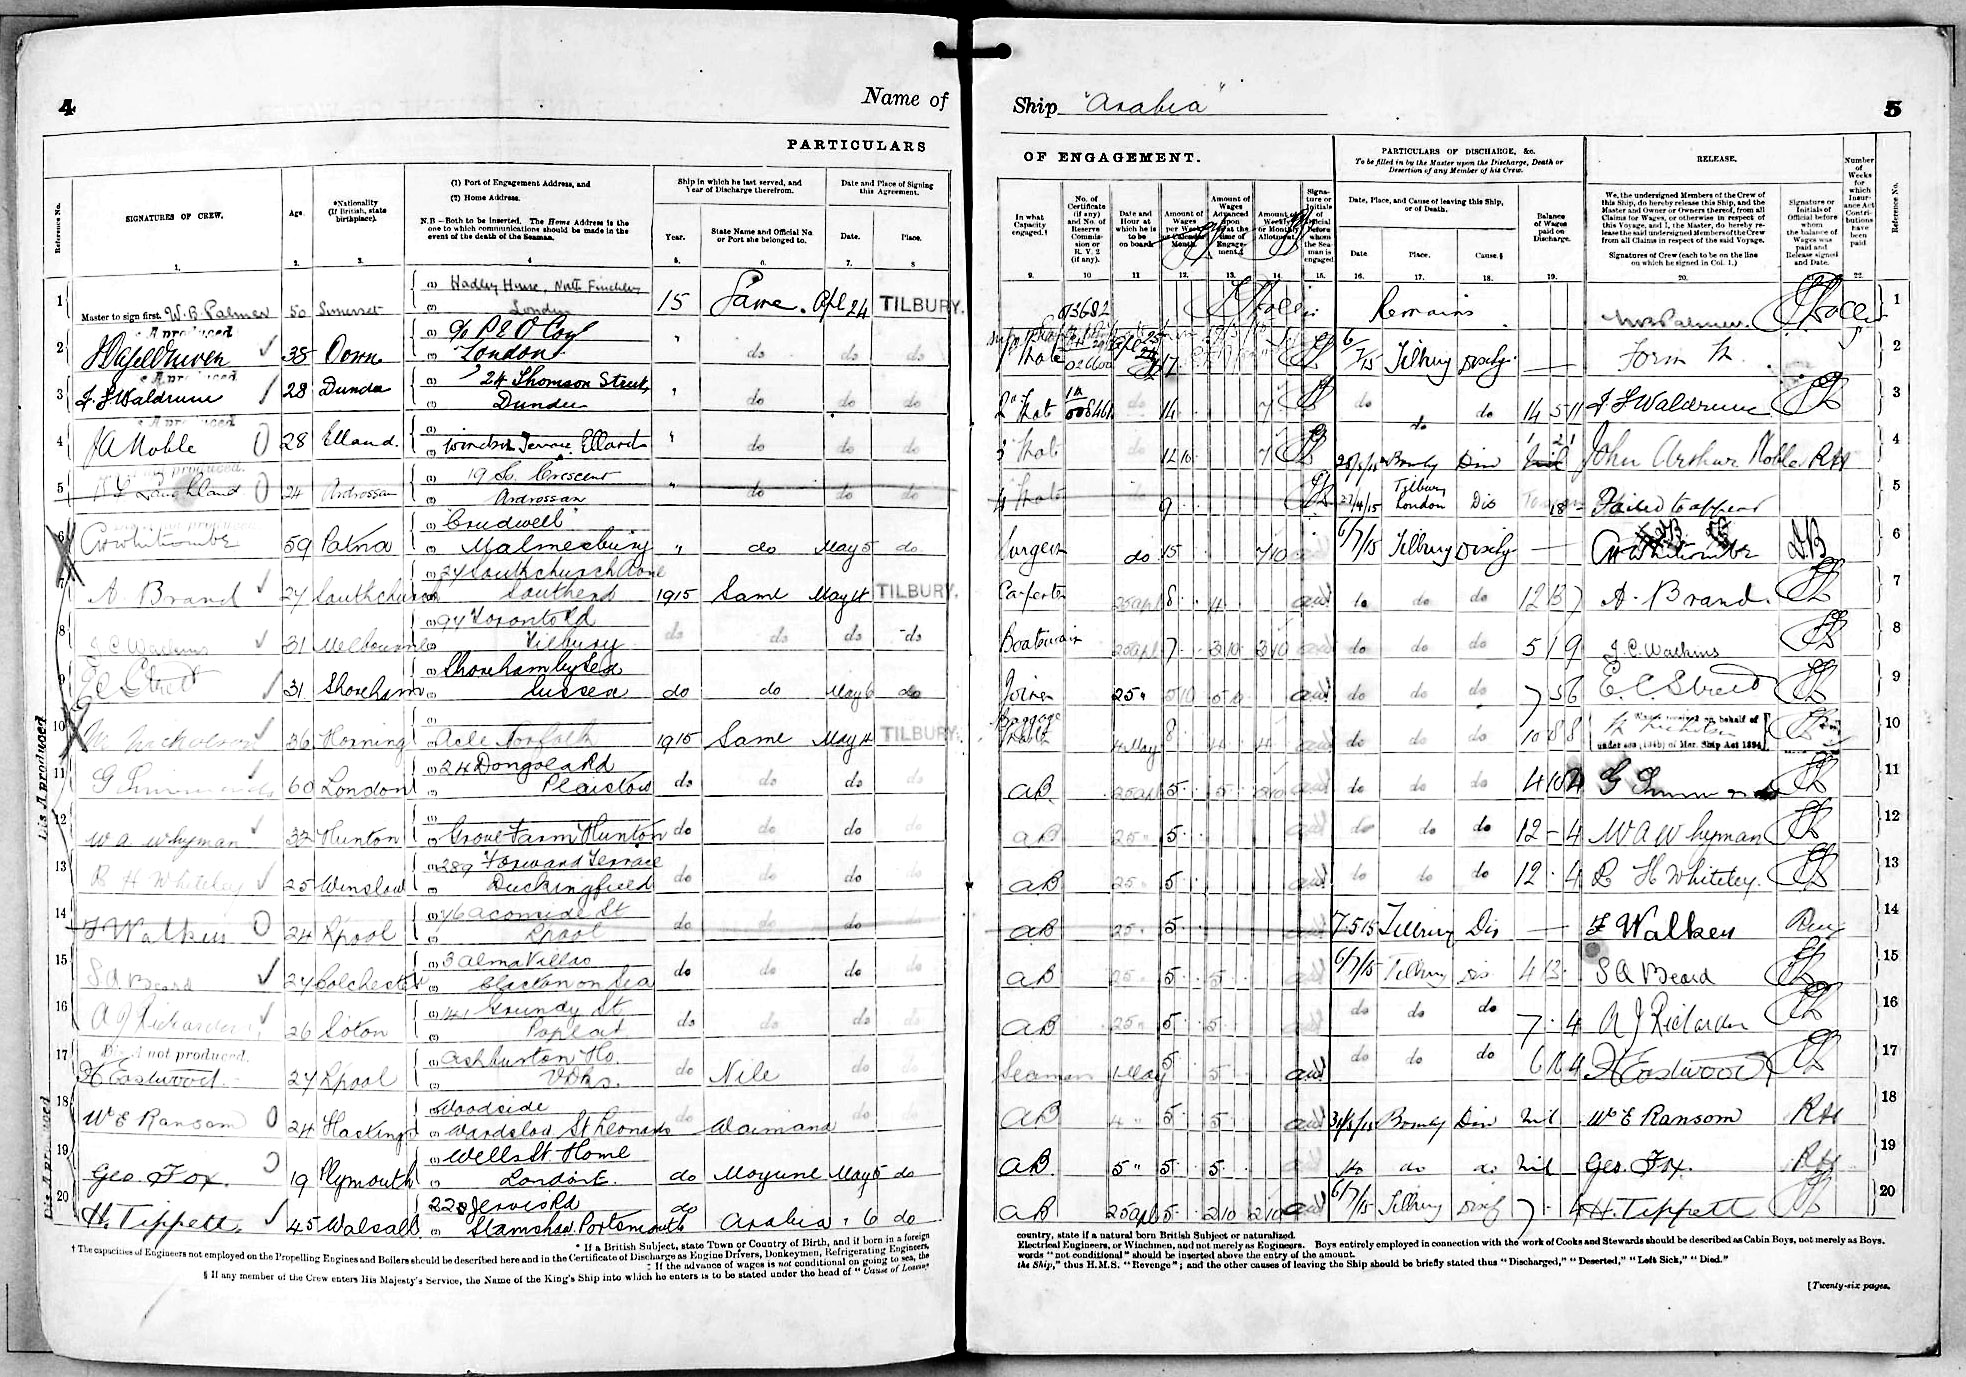 4
Name of
PARTICULARS
Reference No.
SIGNATURES OF CREW.
Age.
*Nationality
(If British, state
birthplace).
(1) Port of Engagement Address, and
(2) Home Address.
N.B—Both to be inserted. The Home Address is the
one to which communications should be made in the
event of the death of the Seaman.
Ship in which he last served, and
Year of Discharge therefrom.
Year.
State Name and Official No.
or Port she belonged to.
Date and Place of Signing
this Agreement.
Date.
Place.
1. 2. 3. 4 5. 6. 7. 8
1 Master to sign first. W.B. Palmer 50 Somerset (1) Hadley House, North Finchley
(2) London 15 Same. Apl 24 TILBURY.
2 38 Down (1) c/o P & O Coy
(2) London " do do do
3 F. S Waldrum 28 Dundee (1) 24 Thomson Street,
(2) Dundee " do do do
4 JA Noble 28 Elland. (1)
(2) Windsor Terrace Elland " do do do
5 24 Ardrossan (1) 19 So. Crescent
(2) Ardrossan " do do do
6 CW Whitcombe 59 Patna (1) "Crudwell"
(2) Malmesbury " do May 5 do
7 A. Brand 27 Southchurch (1) Southchurch
(2) Southend 1915 Same May 4 TILBURY.
8 J.C. Watkins 31 Melbourne (1) 94 Toronto Rd
(2) Tilbury do do do do
9 E C Street 31 Shoreham (1) Shoreham by Sea
(2) Sussex do do May 6 do
10 36 Horning (1)
(2) Acle Norfolk 1915 Same May 4 TILBURY.
11 G Simmonds 60 London (1) 24 Dongola Rd
(2) Plaistow do do do do
12 W A Whyman 32 Hunton (1)
(2) Grove Farm Hunton do do do
13 R H Whiteley 25 Winslow (1) 289 Forward Terrace
(2) Duckingfield do do do do
14 F Walker 24 Lpool (1)
(2) Lpool do do do
15 S A Beard 27 Colchester (1) 3 Alma Villas
(2) Clacton on Sea do do do
16 A J Richardson 26 Soton (1) 41 Grundy St
(2) Poplar do do do do
17 Dis A not produced.
H Eastwood 27 Lpool (1) Ashburton Ho.
(2) V Dks. do Nile do do
18 Wm E Ransom 24 Hastings (1) Woodside
(2) St Leonards do Waimana do
19 Geo. Fox. 19 Plymouth (1) Wells St. Home
(2) London E. do Moyune May 5 do
20 H. Tippett 45 Walsall 228 Jervis Rd
(2) Stamshaw Portsmouth do Arabia " 6 do
Dis A produced
* If a British Subject, state Town or Country of Birth, and if born in a foreign
† The capacities of Engineers not employed on the Propelling Engines and Boilers should be described here and in the Certificate of Discharge as Engine Drivers, Donkeymen, Refrigerating Engineers,
‡ If the advance of wages is not conditional on going to sea, the
§ If any member of the Crew enters His Majesty's Service, the Name of the King's Ship into which he enters is to be stated under the head of "Cause of Leaving
Ship "Arabia"
5
OF ENGAGEMENT.
PARTICULARS OF DISCHARGE, &c.
To be filled in by the Master upon the Discharge, Death or
Desertion of any Member of his Crew.
RELEASE.
In what
Capacity
engaged.†
No. of
Certificate
(if any)
and No. of
Reserve
Commis-
sion or
R. V. 2
(if any).
Date and
Hour at
which he is
to be
on board.
Amount of
Wages
per Week
or Calendar
Month.
Amount of
Wages
Advanced
upon
at the
time of
Engage-
ment.‡
Amount of
Weekly
or Monthly
Allotment.
Signa-
ture or
Initials
of
Official
before
whom
the Sea-
man is
engaged
Date, Place, and Cause of leaving this Ship,
or of Death.
Date.
Place.
Cause.§
Balance
of Wages
paid on
Discharge.
We, the undersigned Members of the Crew of
this Ship, do hereby release this Ship, and the
Master and Owner or Owners thereof, from all
Claims for Wages, or otherwise in respect of
this Voyage, and I, the Master, do hereby re-
lease the said undersigned Members of the Crew
from all Claims in respect of the said Voyage.
Signatures of Crew (each to be on the line
on which he signed in Col. 1.)
Signature or
Initials of
Official before
whom
the balance of
Wages was
paid and
Release signed
and Date.
Number
of
Weeks
for
which
Insur-
ance Act
Contri-
butions
have
been
paid
Reference No.
9. 10 11 12. 13. 14 15. 16. 17. 18. 19. 20. 22.
Remains W B Palmer 1
6/7/15 Tilbury Disch — Form 2
2nd Mate 14 7 do do do 14 5 11 F S Waldrum 3
3 Mate do 12 10 7 Bomby Dis John Arthur Noble RH 4
4 Mate 9 27/4/15 Tilbury
London Dis Failed to appear 5
Surgeon do 15 7 10 6/7/15 Tilbury Disch — CW Whitcombe DB 6
Carpenter 25 Apl 8 4 do do do 12 13 7 A. Brand. 7
Boatswain 25 Apl 7 3 10 3 10 do do do 5 1 9 J.C. Watkins 8
Joiner 25 " 5 10 5 10 do do do 7 5 6 E. C Street 9
Baggage
Master 4 May 8 4 4 do do do 10 8 8 on behalf of
under sec. of Mer. Ship Act 1894 10
AB. 25 Apl 5 5 do do do 4 10 G Simmonds 11
AB 25 " 5 do do do 12 – 4 W A Whyman 12
AB 25 " 5 do do do 12 · 4 R H Whiteley. 13
AB 25 " 5 7.5.15 Tilbury Dis — F Walker 14
AB 25 " 5 5 6/7/15 Tilbury Dis 4 13 S A Beard 15
AB 25 " 5 5 do do do 7 · 4 A J Richardson 16
Seaman 1 May 5 5 do do do 6 4 H Eastwood 17
AB 4 " 5 5 Bomby Dis Nil Wm E Ransom RH 18
AB. 5 " 5 5 do do do Nil Geo. Fox. RH 19
AB 25 Apl 5 2 10 2 10 6/7/15 Tilbury Disch 7 · 4 H. Tippett 20
country, state if a natural born British Subject or naturalized.
Electrical Engineers, or Winchmen, and not merely as Engineers. Boys entirely employed in connection with the work of Cooks and Stewards should be described as Cabin Boys, not merely as Boys.
words "not conditional" should be inserted above the entry of the amount.
the Ship," thus H.M.S. "Revenge"; and the other causes of leaving the Ship should be briefly stated thus "Discharged," "Deserted," "Left Sick," "Died."
[Twenty-six pages.